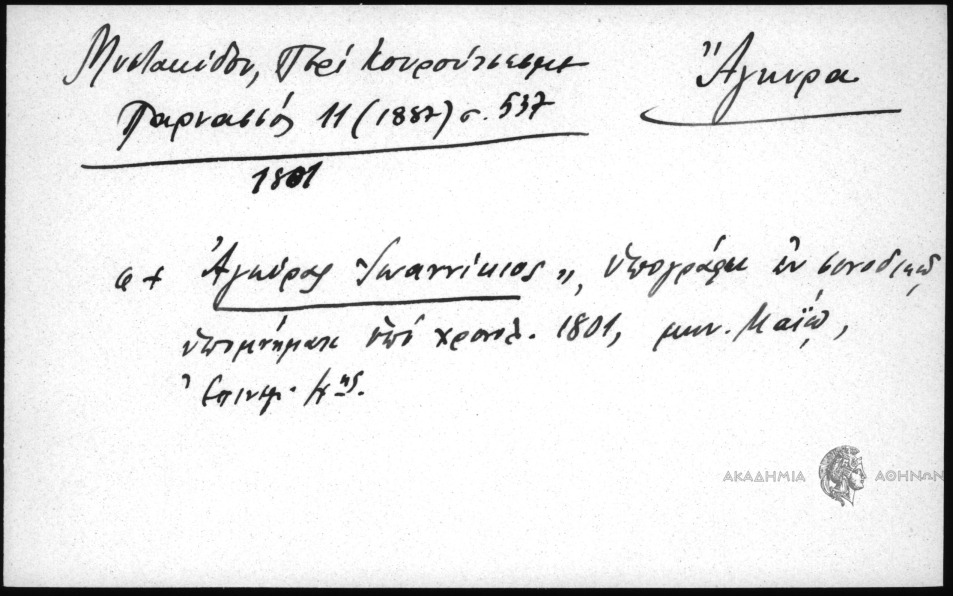 Μυστακίδου, Περί Κουρούτσεσμε
Ἄγκυρα
Παρνασσός 11 (1887) σ. 537
1801
"+ Ἀγκύρας Ἰωαννίκιος", ὑπογράφει ἐν συνοδικῷ
ὑπομνήματι ὑπό χρονολ. 1801, μην. Μαΐῳ,
Ἐπινεμ.
ΑΚΑΔΗΜΙΑ ΑΘΗΝΩΝ